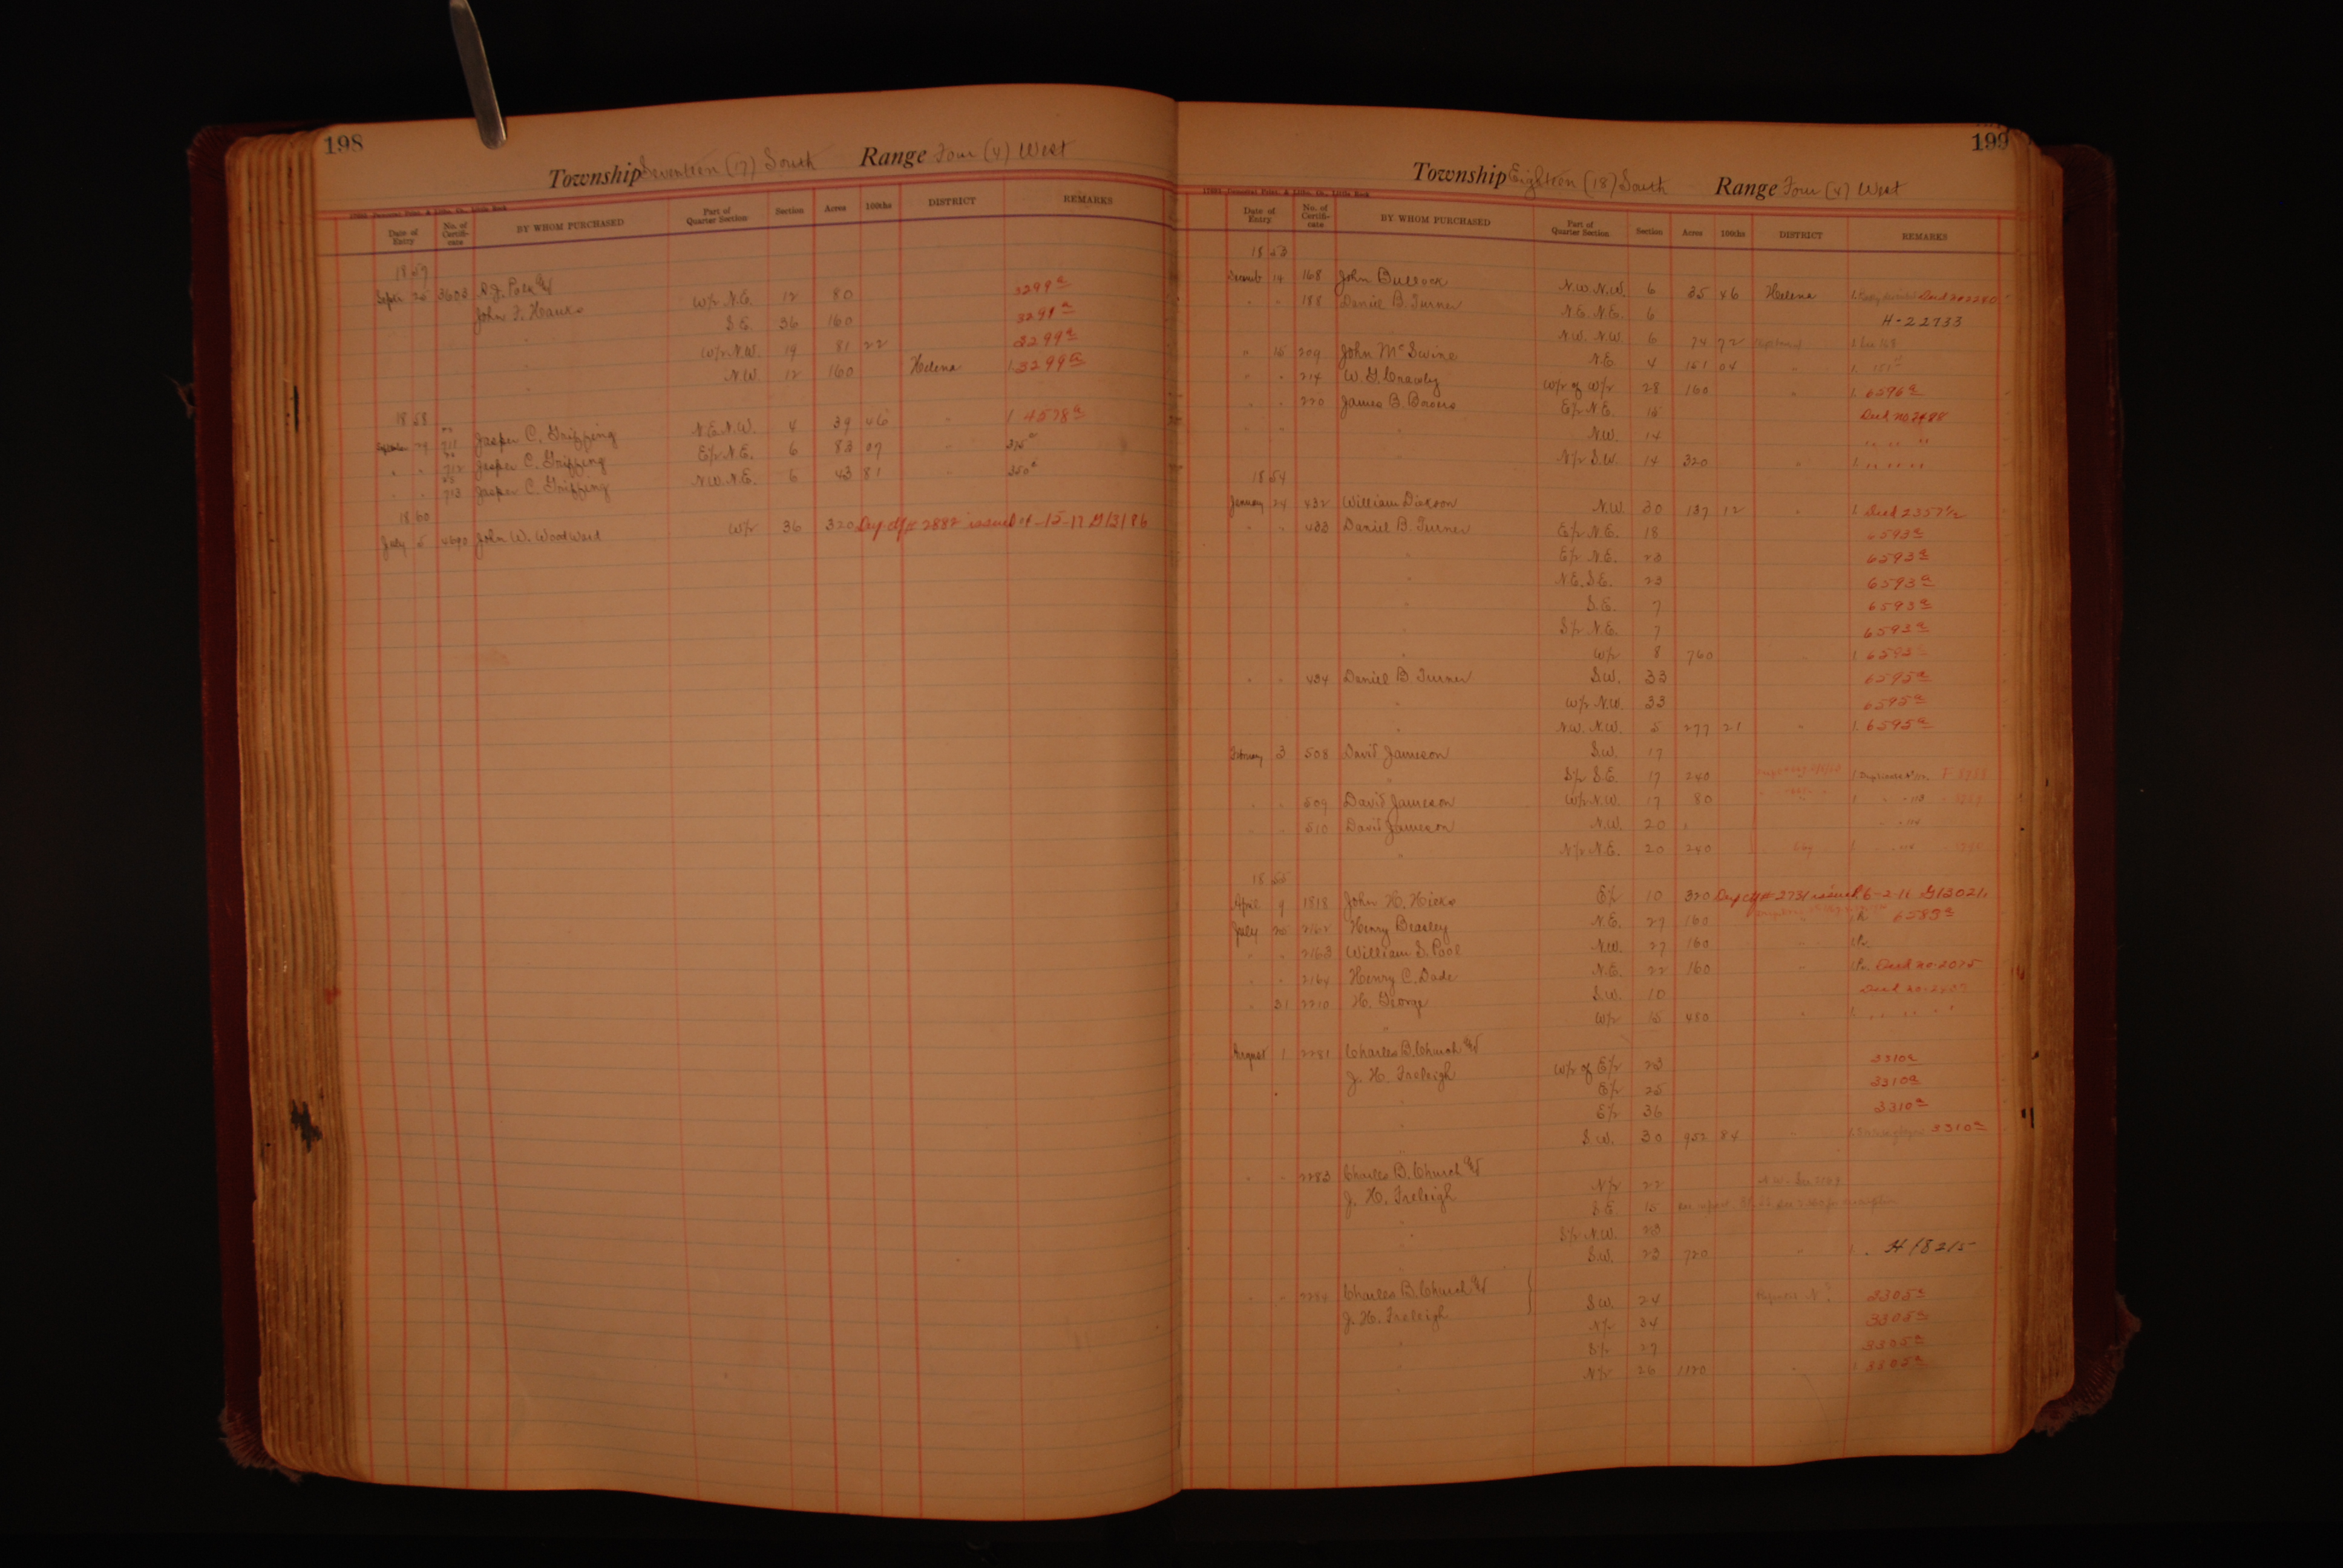 198
Township Seventeen (17) South Range Four (4) West
Date of Entry No. of Certifi-cate BY WHOM PURCHASED Part of Quarter Section Section Acres 100ths DISTRICT REMARKS
1859
3603
John F. Hanks W/2 N.E. 12 80 3299a
" S.E. 36 160 3299a
" W/2 N.W. 19 81 22 3299a
" N.W. 12 160 Helena 1. 3299a
1858
29 711 Jasper C. Gripping N.E.N.W. 4 39 46 " 1 4578a
" " 712 Jasper C. Gripping E/2 N.E. 6 83 07 "
" " 713 Jasper C. Gripping N.W.N.E. 6 43 81 " 350a
1860
July 5 4690 John W. Woodward W/2 36 320 Dup ctf # 2882 issued
199
Township Eighteen (18) South Range Four (4) West
Date of Entry No. of Certifi-cate BY WHOM PURCHASED Part of Quarter Section Section Acres 100ths DISTRICT REMARKS
1853
14 168 John Bullock N.W. N.W. 6 35 46 Helena
" " 188 Daniel B. Turner N.E. N.E. 6 H-22733
N.W. N.W. 6 74 72
" 15 209 John McSwine N.E. 4 161 04 "
" " 214 W. G. W/2 of W/2 28 160 " 1. 6596a
" " 220 James B. E/2 N.E. 15 Deed no 2488
" " " N.W. 14 " " "
" N/2 S.W. 14 320 " 1. " " " "
1854
January 24 432 William Dickson N.W. 30 137 12 " 1. Deed 2357 1/2
" " 433 Daniel B. Turner E/2 N.E. 18 6593a
" E/2 N.E. 23 6593a
" N.E. S.E. 23 6593a
" S.E. 7 6593a
" S/2 N.E. 7 6593a
" W/2 8 760 1. 6593a
" " 434 Daniel B Turner S.W. 33 6595a
" W/2 N.W. 33 6595a
" N.W. N.W. 5 277 21 " 1. 6595a
February 3 508 David Jameson S.W. 17
" S/2 S.E. 17 240
" " 509 David Jameson W/2 N.W. 17 80
" " 510 David Jameson N.W. 20
" N/2 N.E. 20 240
1855
April 9 1818 John H. Hicks E/2 10 320 Dup ctf # 2731 issued 6-2-11
July 26 2162 Henry Beasley N.E. 27 160 6589a
" " 2163 William S. Pool N.W. 27 160
" " 2164 Henry C. Dade N.E. 22 160 " Deed no. 2075
" 31 2210 H. George S.W. 10 Deed no.
" W/2 15 480 "
August 1 2281 Charles B. Church &
J. H. Freleigh W/2 of E/2 23 3310a
" E/2 25 3310a
" E/2 36 3310a
" S.W. 30 952 84 3310a
" " 2283 Charles B. Church &
J. H. Freleigh N/2 22
S.E. 15
" S/2 N.W. 23
S.W. 23 720 " H 18215
" " Charles B. Church &
J. H. Freleigh S.W. 24 3305a
N/2 34 3305a
" S/2 27 3305a
" N/2 26 1120 " 1. 3305a